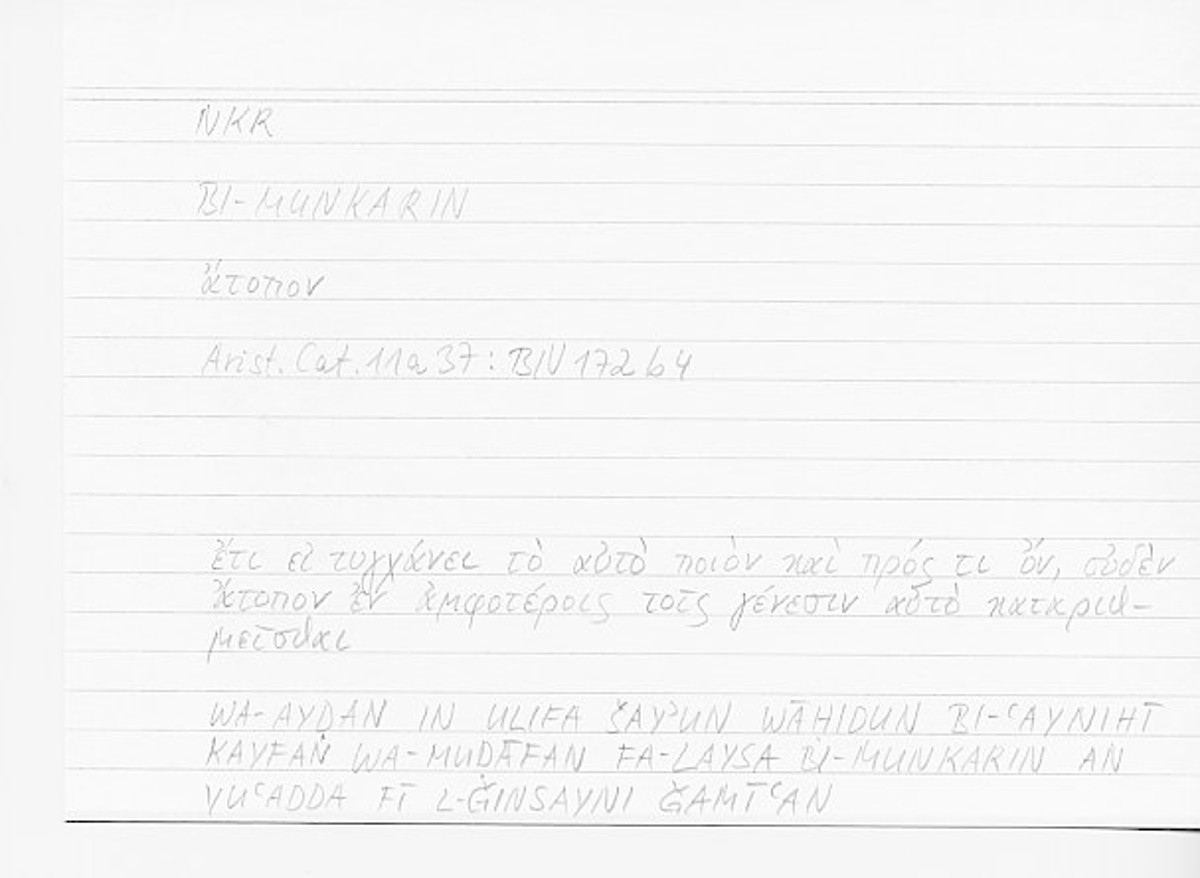 NKR
BI-MUNKARIN
ἄτοπον
Arist. Cat. 11a37: BIV 172b4
ἔτι εἰ τυγχάνει τὸ αὐτὸ ποιὸν καὶ πρός τι ὄν, οὐδὲν
ἄτοπον ἐν ἀμφοτέροις τοῖς γένεσιν αὐτὸ καταριθ-
μεῖσθαι
WA-AYḌAN IN ULIFA ŠAYʾUN WĀḤIDUN BI-ʿAYNIHĪ
KAYFAN WA-MUḌĀFAN FA-LAYSA BI-MUNKARIN AN
YUʿADDA FĪ L-ǦINSAYNI ǦAMĪʿAN